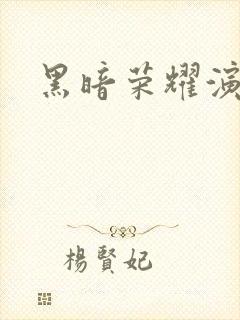 黑暗荣耀演
楊賢妃